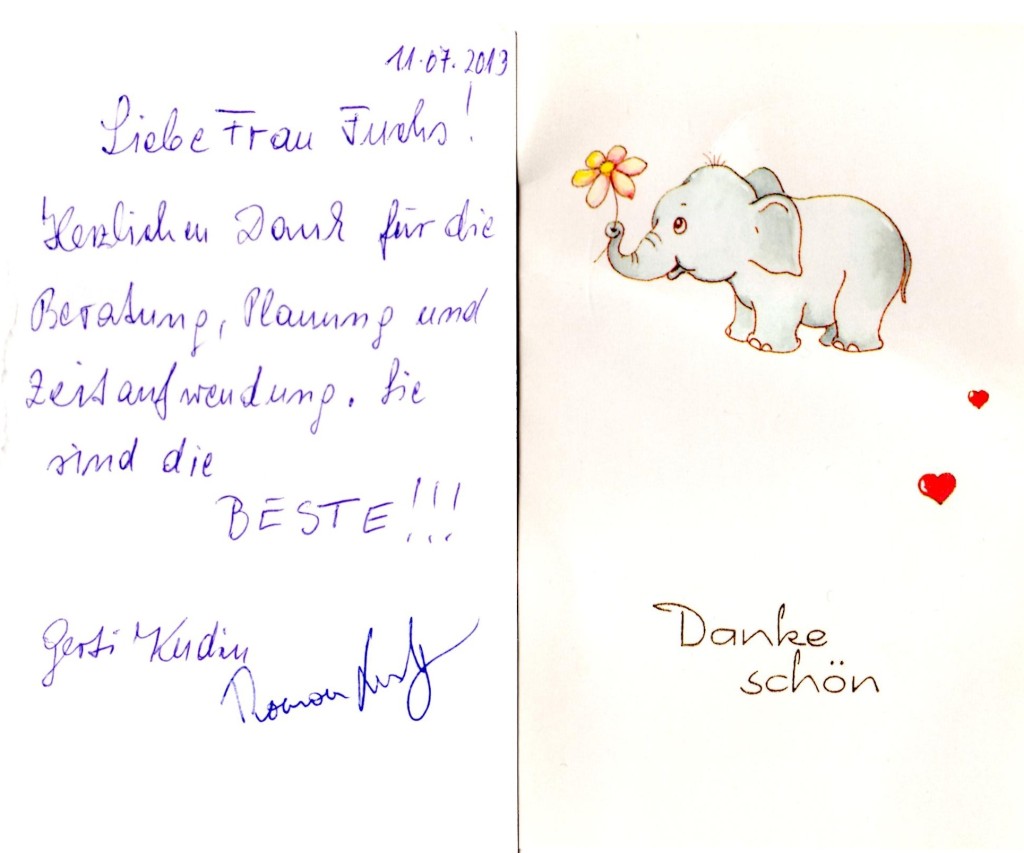 11.07.2013
Liebe Frau Fuchs!
Herzlichen Dank für die
Beratung, Planung und
Zeitaufwendung. Sie
sind die
BESTE!!!
Gerti
Roman
Danke
schön